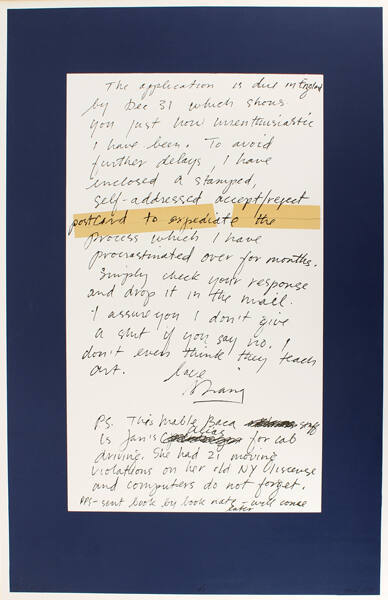 The application is due in England
by Dec 31 which shows
you just how unenthusiastic
I have been. To avoid
further delays, I have
enclosed a stamped,
self-addressed accept/reject
postcard to expediate the
process which I have
procrastinated over for months.
Simply check your response
and drop it in the mail.
I assure you I don't give
a shit if you say no. I
don't even think they teach
art. Love
PS. This Mable Baca stuff
is Jan's alias for cab
driving. She had 21 moving
violations on her old NY liscense
and computers do not forget.
PPS - sent book by book rate - will come
later